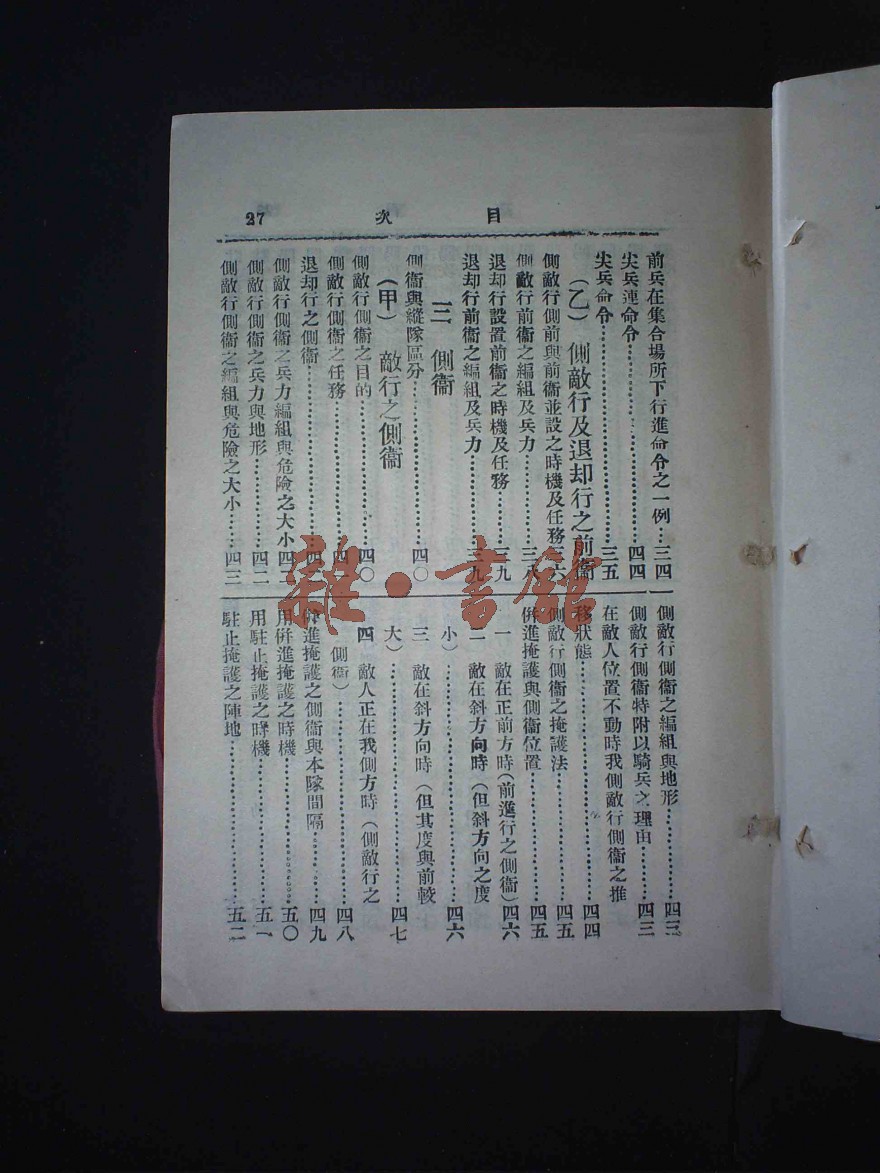 目次 27
前兵在集合場所下行進命令之一例…三四
尖兵連命令…四四
尖兵命令…三五
(乙) 側敵行及退却行之前衞
側敵行側前與前衞並設之時機及任務三六
側敵行前衞之編組及兵力…三八
退却行設置前衞之時機及任務…三九
退却行前衞之編組及兵力…三九
三 側衞
側衞與縱隊區分…四〇
(甲) 敵行之側衞
側敵行側衞之目的…四〇
側敵行側衞之任務…四
退却行之側衞…四
側敵行側衞之兵力編組與危險之大小四二
側敵行側衞之兵力與地形…四二
側敵行側衞之編組與危險之大小…四三
側敵行側衞之編組與地形…四三
側敵行側衞特附以騎兵之理由…四三
在敵人位置不動時我側敵行側衞之推
移狀態…四四
側敵行側衞之掩護法…四五
併進掩護與側衞位置…四五
一 敵在正前方時(前進行之側衞)四六
二 敵在斜方向時(但斜方向之度
小)…四六
三 敵在斜方向時(但其度與前較
大)…四七
四 敵人正在我側方時(側敵行之
側衞)…四八
併進掩護之側衞與本隊間隔…四九
用併進掩護之時機…五〇
用駐止掩護之時機…五一
駐止掩護之陣地…五二
雜·書館